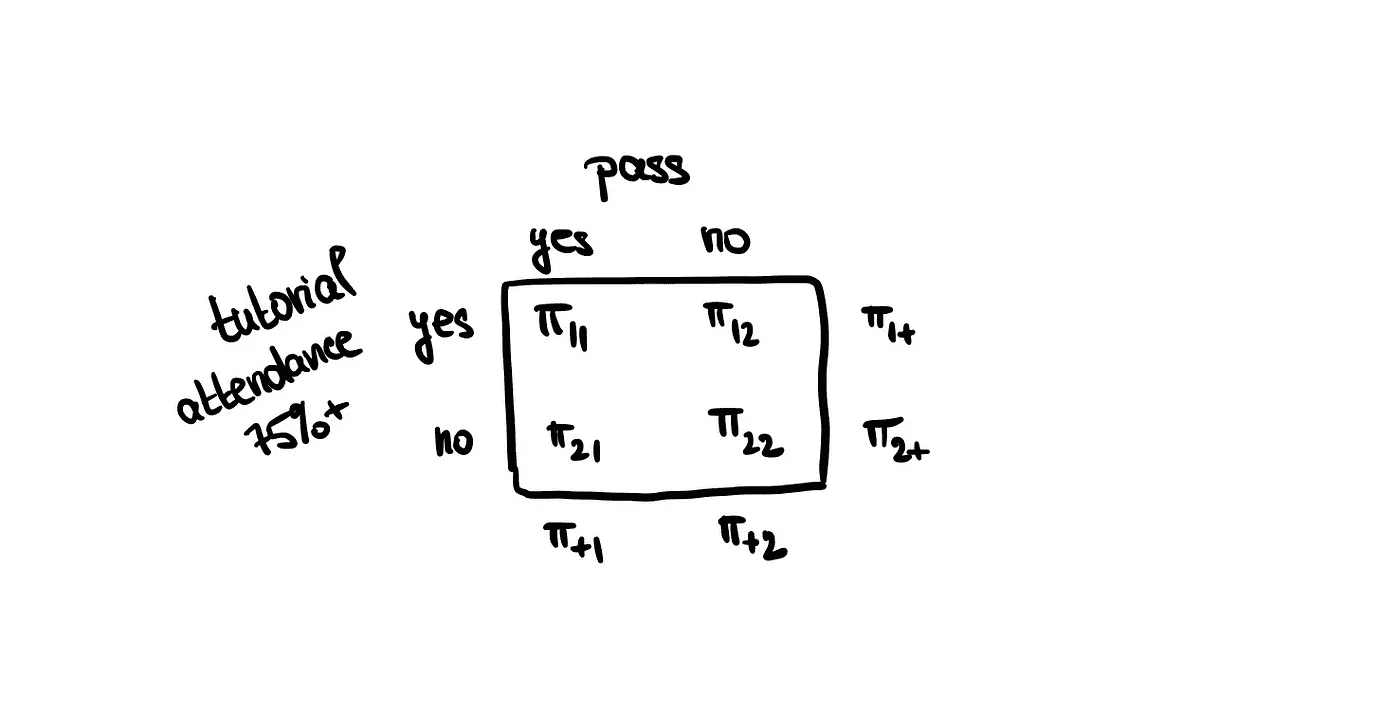 pass
yes no
tutorial
attendance
75%+
yes π11 π12 π1+
no π21 π22 π2+
π+1 π+2